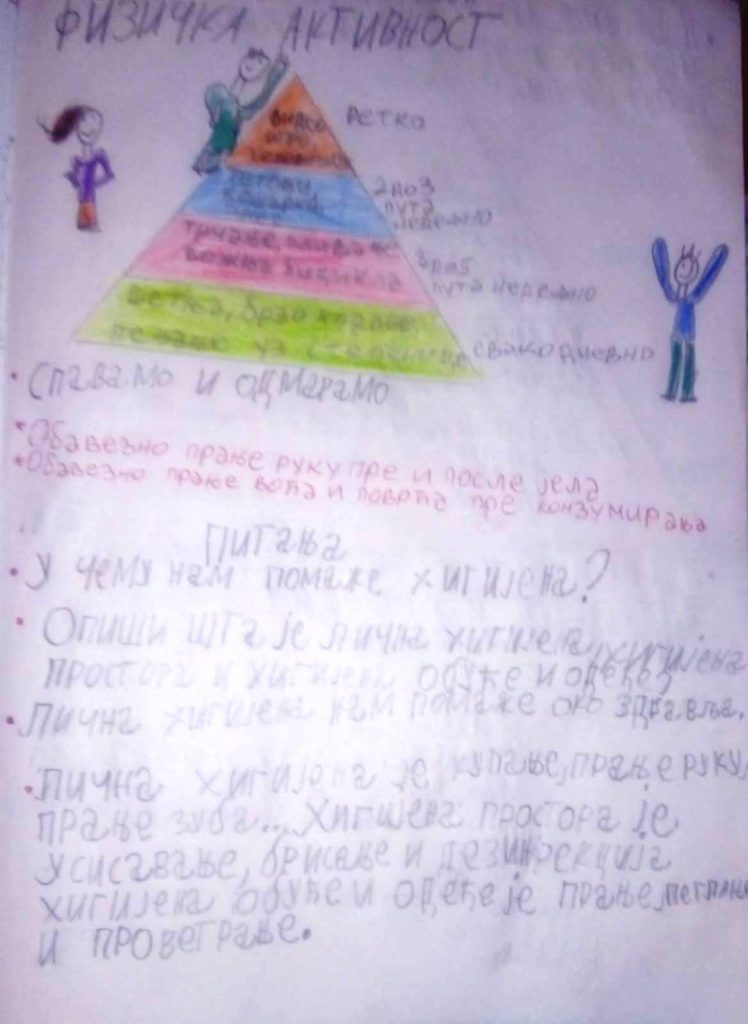 ФИЗИЧКА АКТИВНОСТ
видео
игре,
РЕТКО
2 до 3
пута
недељно
трчање, пливање
вожња бицикла
3 до 5
пута недељно
шетња, брзо ходање,
пењање уз степенице
свакодневно
• Спавамо и одмарамо
• Обавезно прање руку пре и после јела
• Обавезно прање воћа и поврћа пре конзумирања
ПИТАЊА
• У чему нам помаже хигијена?
• Опиши шта је лична хигијена, хигијена
простора и хигијена обуће и одеће?
• Лична хигијена нам помаже око здравља.
• Лична хигијена је купање, прање руку,
прање зуба... Хигијена простора је
усисавање, брисање и дезинфекција
хигијена обуће и одеће је прање,
и проветрање.